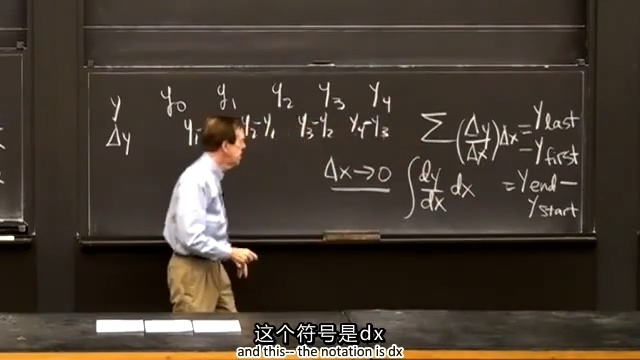 y y₀ y₁ y₂ y₃ y₄
Δy y₁- y₂-y₁ y₃-y₂ y₄-y₃
∑(Δy/Δx)Δx = Ylast - Yfirst
Δx→0 ∫ dy/dx dx = Yend - Ystart
这个符号是dx
and this-- the notation is dx